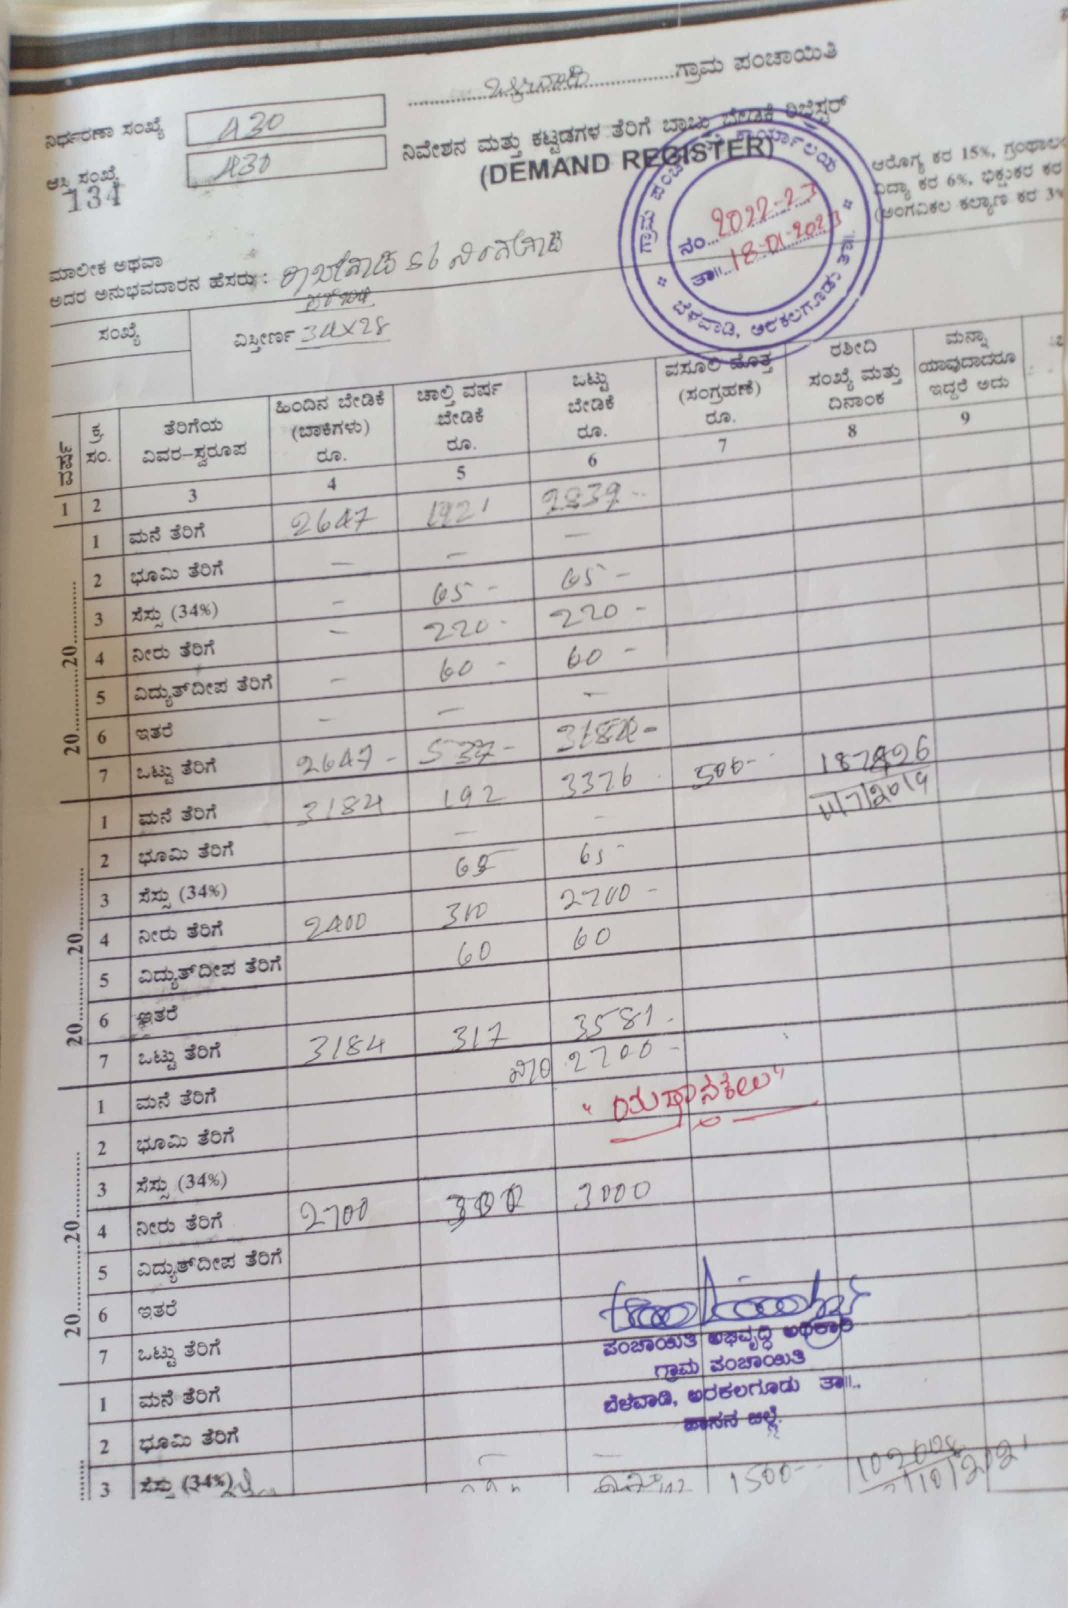 ಗ್ರಾಮ ಪಂಚಾಯಿತಿ
ನಿರ್ಧರಣಾ ಸಂಖ್ಯೆ 430
ನಿವೇಶನ ಮತ್ತು ಕಟ್ಟಡಗಳ ತೆರಿಗೆ ಬಾಬ್ತು ಬೇಡಿಕೆ ರಿಜಿಸ್ಟರ್
(DEMAND REGISTER)
ಆಸ್ತಿ ಸಂಖ್ಯೆ 430
134
ಆರೋಗ್ಯ ಕರ 15%, ಗ್ರಂಥಾಲಯ
ವಿದ್ಯಾ ಕರ 6%, ಭಿಕ್ಷುಕರ ಕರ
(ಅಂಗವಿಕಲ ಕಲ್ಯಾಣ ಕರ 3%
ಗ್ರಾಮ ಪಂಚಾಯಿತಿ ಕಾರ್ಯಾಲಯ
ನಂ. 2022-23
ತಾ॥. 18-01-2023
ಬೆಳವಾಡಿ, ಅರಕಲಗೂಡು ತಾ॥.
ಮಾಲೀಕ ಅಥವಾ
ಅದರ ಅನುಭವದಾರನ ಹೆಸರು :
ಸಂಖ್ಯೆ ವಿಸ್ತೀರ್ಣ 34x28
ವರ್ಷ ಕ್ರ. ಸಂ. ತೆರಿಗೆಯ ವಿವರ-ಸ್ವರೂಪ ಹಿಂದಿನ ಬೇಡಿಕೆ (ಬಾಕಿಗಳು) ರೂ. ಚಾಲ್ತಿ ವರ್ಷ ಬೇಡಿಕೆ ರೂ. ಒಟ್ಟು ಬೇಡಿಕೆ ರೂ. ವಸೂಲಿ ಮೊತ್ತ (ಸಂಗ್ರಹಣೆ) ರೂ. ರಶೀದಿ ಸಂಖ್ಯೆ ಮತ್ತು ದಿನಾಂಕ ಮನ್ನಾ ಯಾವುದಾದರೂ ಇದ್ದರೆ ಅದು
1 2 3 4 5 6 7 8 9
20 20
1 ಮನೆ ತೆರಿಗೆ 2647 2839-
2 ಭೂಮಿ ತೆರಿಗೆ - - -
3 ಸೆಸ್ಸು (34%) - 65- 65-
4 ನೀರು ತೆರಿಗೆ - 220- 220-
5 ವಿದ್ಯುತ್‌ದೀಪ ತೆರಿಗೆ - 60- 60-
6 ಇತರೆ - - -
7 ಒಟ್ಟು ತೆರಿಗೆ 2647- 537- 3184-
20 20
1 ಮನೆ ತೆರಿಗೆ 3184 192 3376 500-
11/7/2019
2 ಭೂಮಿ ತೆರಿಗೆ - -
3 ಸೆಸ್ಸು (34%) 65 65-
4 ನೀರು ತೆರಿಗೆ 2400 300 2700-
5 ವಿದ್ಯುತ್‌ದೀಪ ತೆರಿಗೆ 60 60
6 ಇತರೆ
7 ಒಟ್ಟು ತೆರಿಗೆ 3184 317 3581-
2700-
20 20
1 ಮನೆ ತೆರಿಗೆ
2 ಭೂಮಿ ತೆರಿಗೆ
3 ಸೆಸ್ಸು (34%)
4 ನೀರು ತೆರಿಗೆ 2700 300 3000
5 ವಿದ್ಯುತ್‌ದೀಪ ತೆರಿಗೆ
6 ಇತರೆ
7 ಒಟ್ಟು ತೆರಿಗೆ
ಪಂಚಾಯಿತಿ ಅಭಿವೃದ್ಧಿ ಅಧಿಕಾರಿ
ಗ್ರಾಮ ಪಂಚಾಯಿತಿ
ಬೆಳವಾಡಿ, ಅರಕಲಗೂಡು ತಾ॥.,
ಹಾಸನ ಜಿಲ್ಲೆ.
1 ಮನೆ ತೆರಿಗೆ
2 ಭೂಮಿ ತೆರಿಗೆ
3 ಸೆಸ್ಸು (34%) 1500-